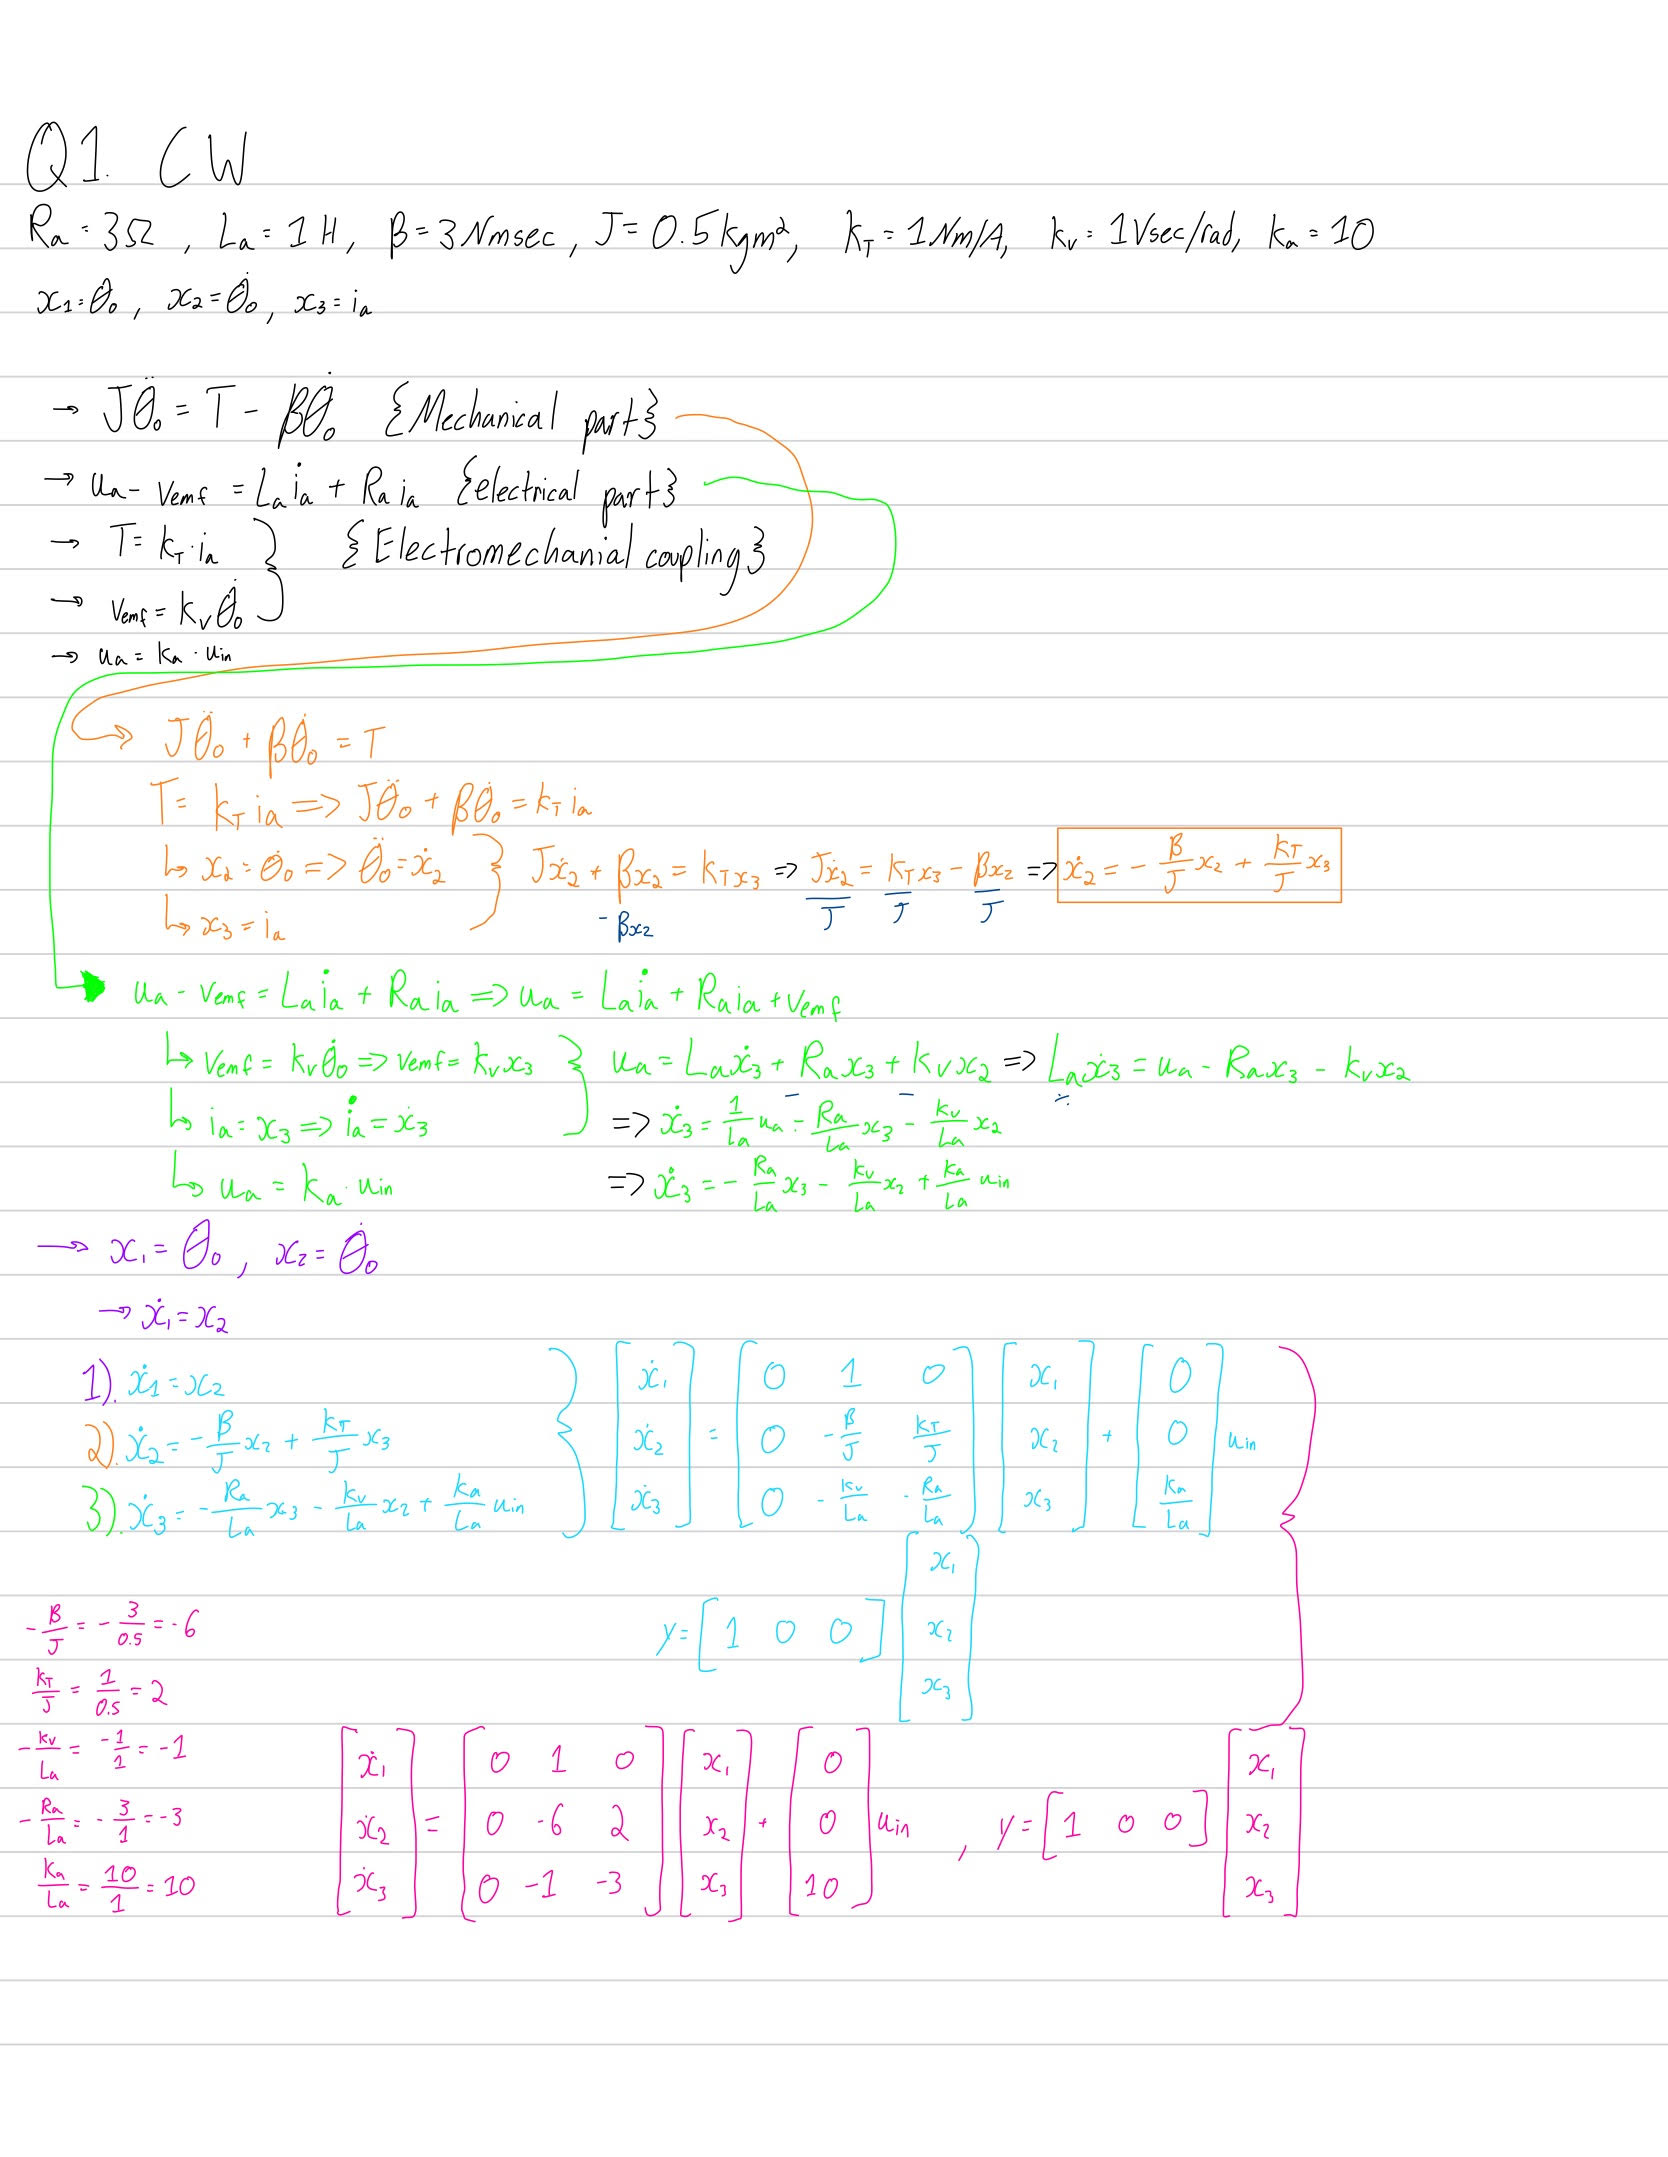 Q1. CW
Ra = 3Ω , La = 1 H, β = 3 Nmsec, J = 0.5 kgm², kT = 1 Nm/A, kv = 1 Vsec/rad, ka = 10
x1 = θo , x2 = θ̇o , x3 = ia
→ Jθ̈o = T - βθ̇o {Mechanical part}
→ ua - vemf = La i̇a + Ra ia {electrical part}
→ T = kT · ia } {Electromechanial coupling}
→ vemf = kv θ̇o
→ ua = ka · uin
Jθ̈o + βθ̇o = T
T = kT ia => Jθ̈o + βθ̇o = kT ia
↳ x2 = θ̇o => θ̈o = ẋ2 } Jẋ2 + βx2 = kT x3 => Jẋ2/J = kT x3/J - βx2/J => ẋ2 = - β/J x2 + kT/J x3
↳ x3 = ia
- βx2
ua - vemf = La i̇a + Ra ia => ua = La i̇a + Ra ia + vemf
↳ vemf = kv θ̇o => vemf = kv x3 } ua = La ẋ3 + Ra x3 + kv x2 => La ẋ3 = ua - Ra x3 - kv x2
- - ÷
↳ ia = x3 => i̇a = ẋ3 => ẋ3 = 1/La ua - Ra/La x3 - kv/La x2
↳ ua = ka · uin => ẋ3 = - Ra/La x3 - kv/La x2 + ka/La uin
→ x1 = θo , x2 = θ̇o
→ ẋ1 = x2
1). ẋ1 = x2
2). ẋ2 = - β/J x2 + kT/J x3
3). ẋ3 = - Ra/La x3 - kv/La x2 + ka/La uin
[ẋ1 ẋ2 ẋ3] = [0 1 0; 0 -β/J kT/J; 0 -kv/La -Ra/La] [x1 x2 x3] + [0 0 ka/La] uin
y = [1 0 0] [x1 x2 x3]
- β/J = - 3/0.5 = -6
kT/J = 1/0.5 = 2
- kv/La = -1/1 = -1
- Ra/La = - 3/1 = -3
ka/La = 10/1 = 10
[ẋ1 ẋ2 ẋ3] = [0 1 0; 0 -6 2; 0 -1 -3] [x1 x2 x3] + [0 0 10] uin , y = [1 0 0] [x1 x2 x3]